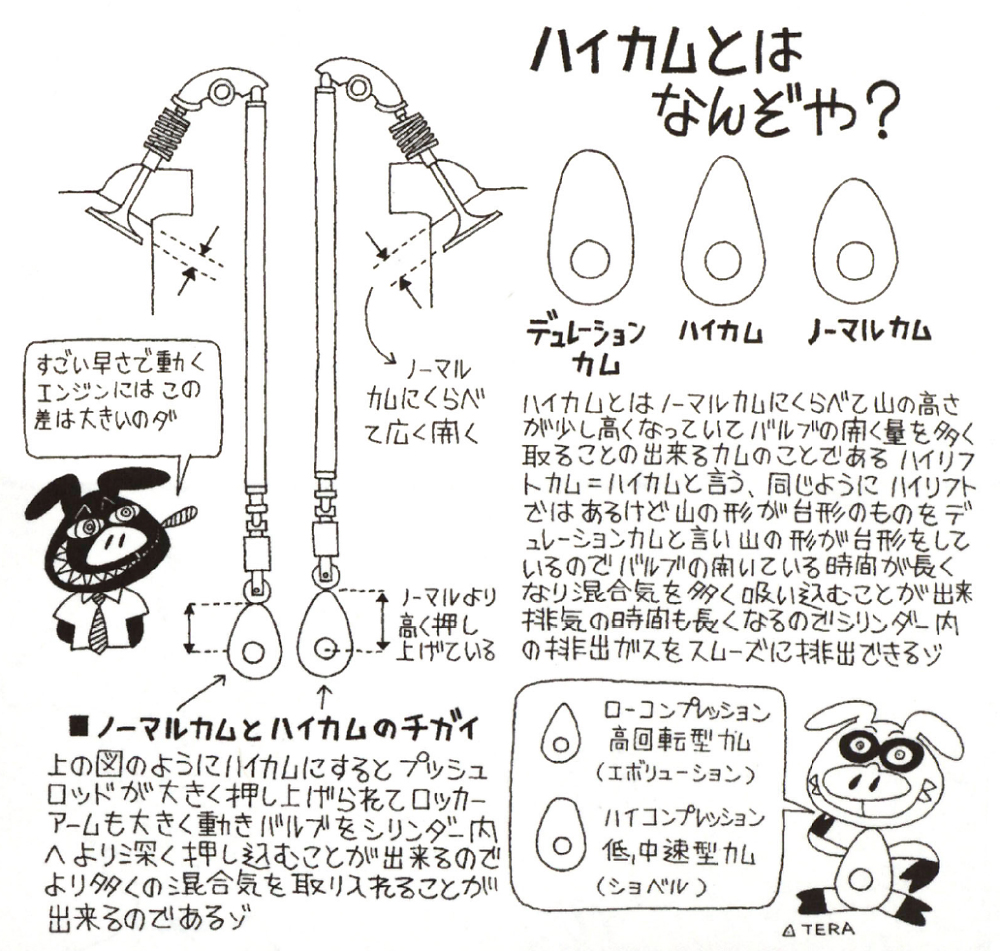 ハイカムとは
なんぞや?
デュレーション
カム
ハイカム
ノーマルカム
すごい早さで動く
エンジンにはこの
差は大きいのダ
ノーマル
カムにくらべ
て広く開く
ハイカムとはノーマルカムにくらべて山の高さ
が少し高くなっていてバルブの開く量を多く
取ることの出来るカムのことである ハイリフ
トカム=ハイカムと言う、同じようにハイリフト
ではあるけど山の形が台形のものをデ
ュレーションカムと言い山の形が台形をして
いるのでバルブの開いている時間が長く
なり混合気を多く吸い込むことが出来
排気の時間も長くなるのでシリンダー内
の排出ガスをスムーズに排出できるゾ
ノーマルより
高く押し
上げている
■ノーマルカムとハイカムのチガイ
上の図のようにハイカムにするとプッシュ
ロッドが大きく押し上げられてロッカー
アームも大きく動きバルブをシリンダー内
へより深く押し込むことが出来るので
より多くの混合気を取り入れることが
出来るのであるゾ
ローコンプレッション
高回転型カム
(エボリューション)
ハイコンプレッション
低,中速型カム
(ショベル)
△TERA